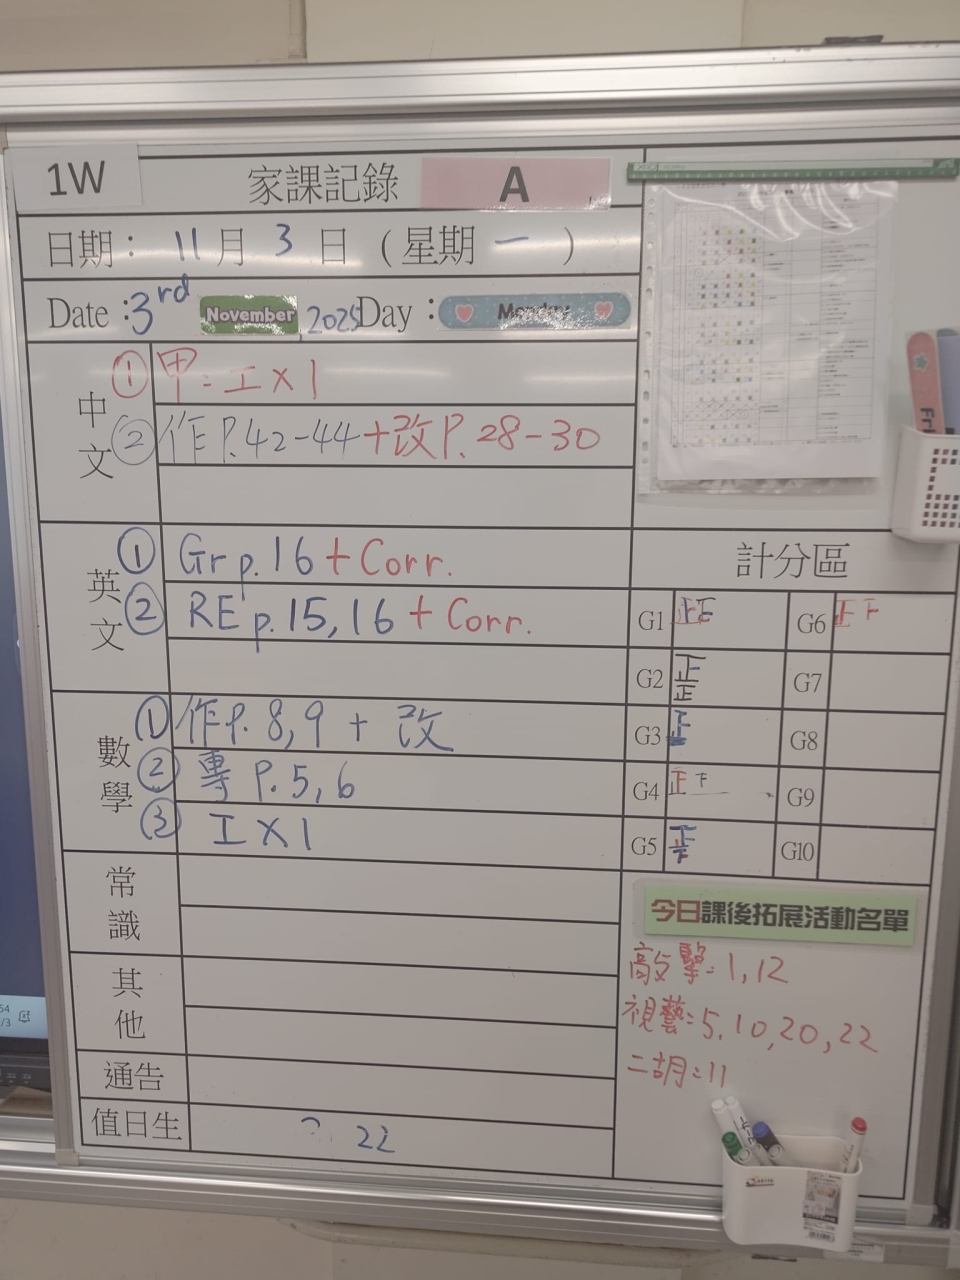 1W
家課記錄 A
日期： 11 月 3 日 （ 星期 一 ）
Date : 3rd November 2025 Day : Monday
中文
① 甲: 工 X 1
② 作 P.42-44 + 改 P.28-30
英文
① Gr p.16 + Corr.
② RE p.15,16 + Corr.
數學
① 作 P.8,9 + 改
② 專 P.5,6
③ 工 X 1
常識
其他
通告
值日生 22
Fri
計分區
G1 正正 G6 正
G2 正正 G7
G3 正 G8
G4 正 G9
G5 正 G10
今日課後拓展活動名單
敲擊: 1,12
視藝: 5,10,20,22
二胡: 11